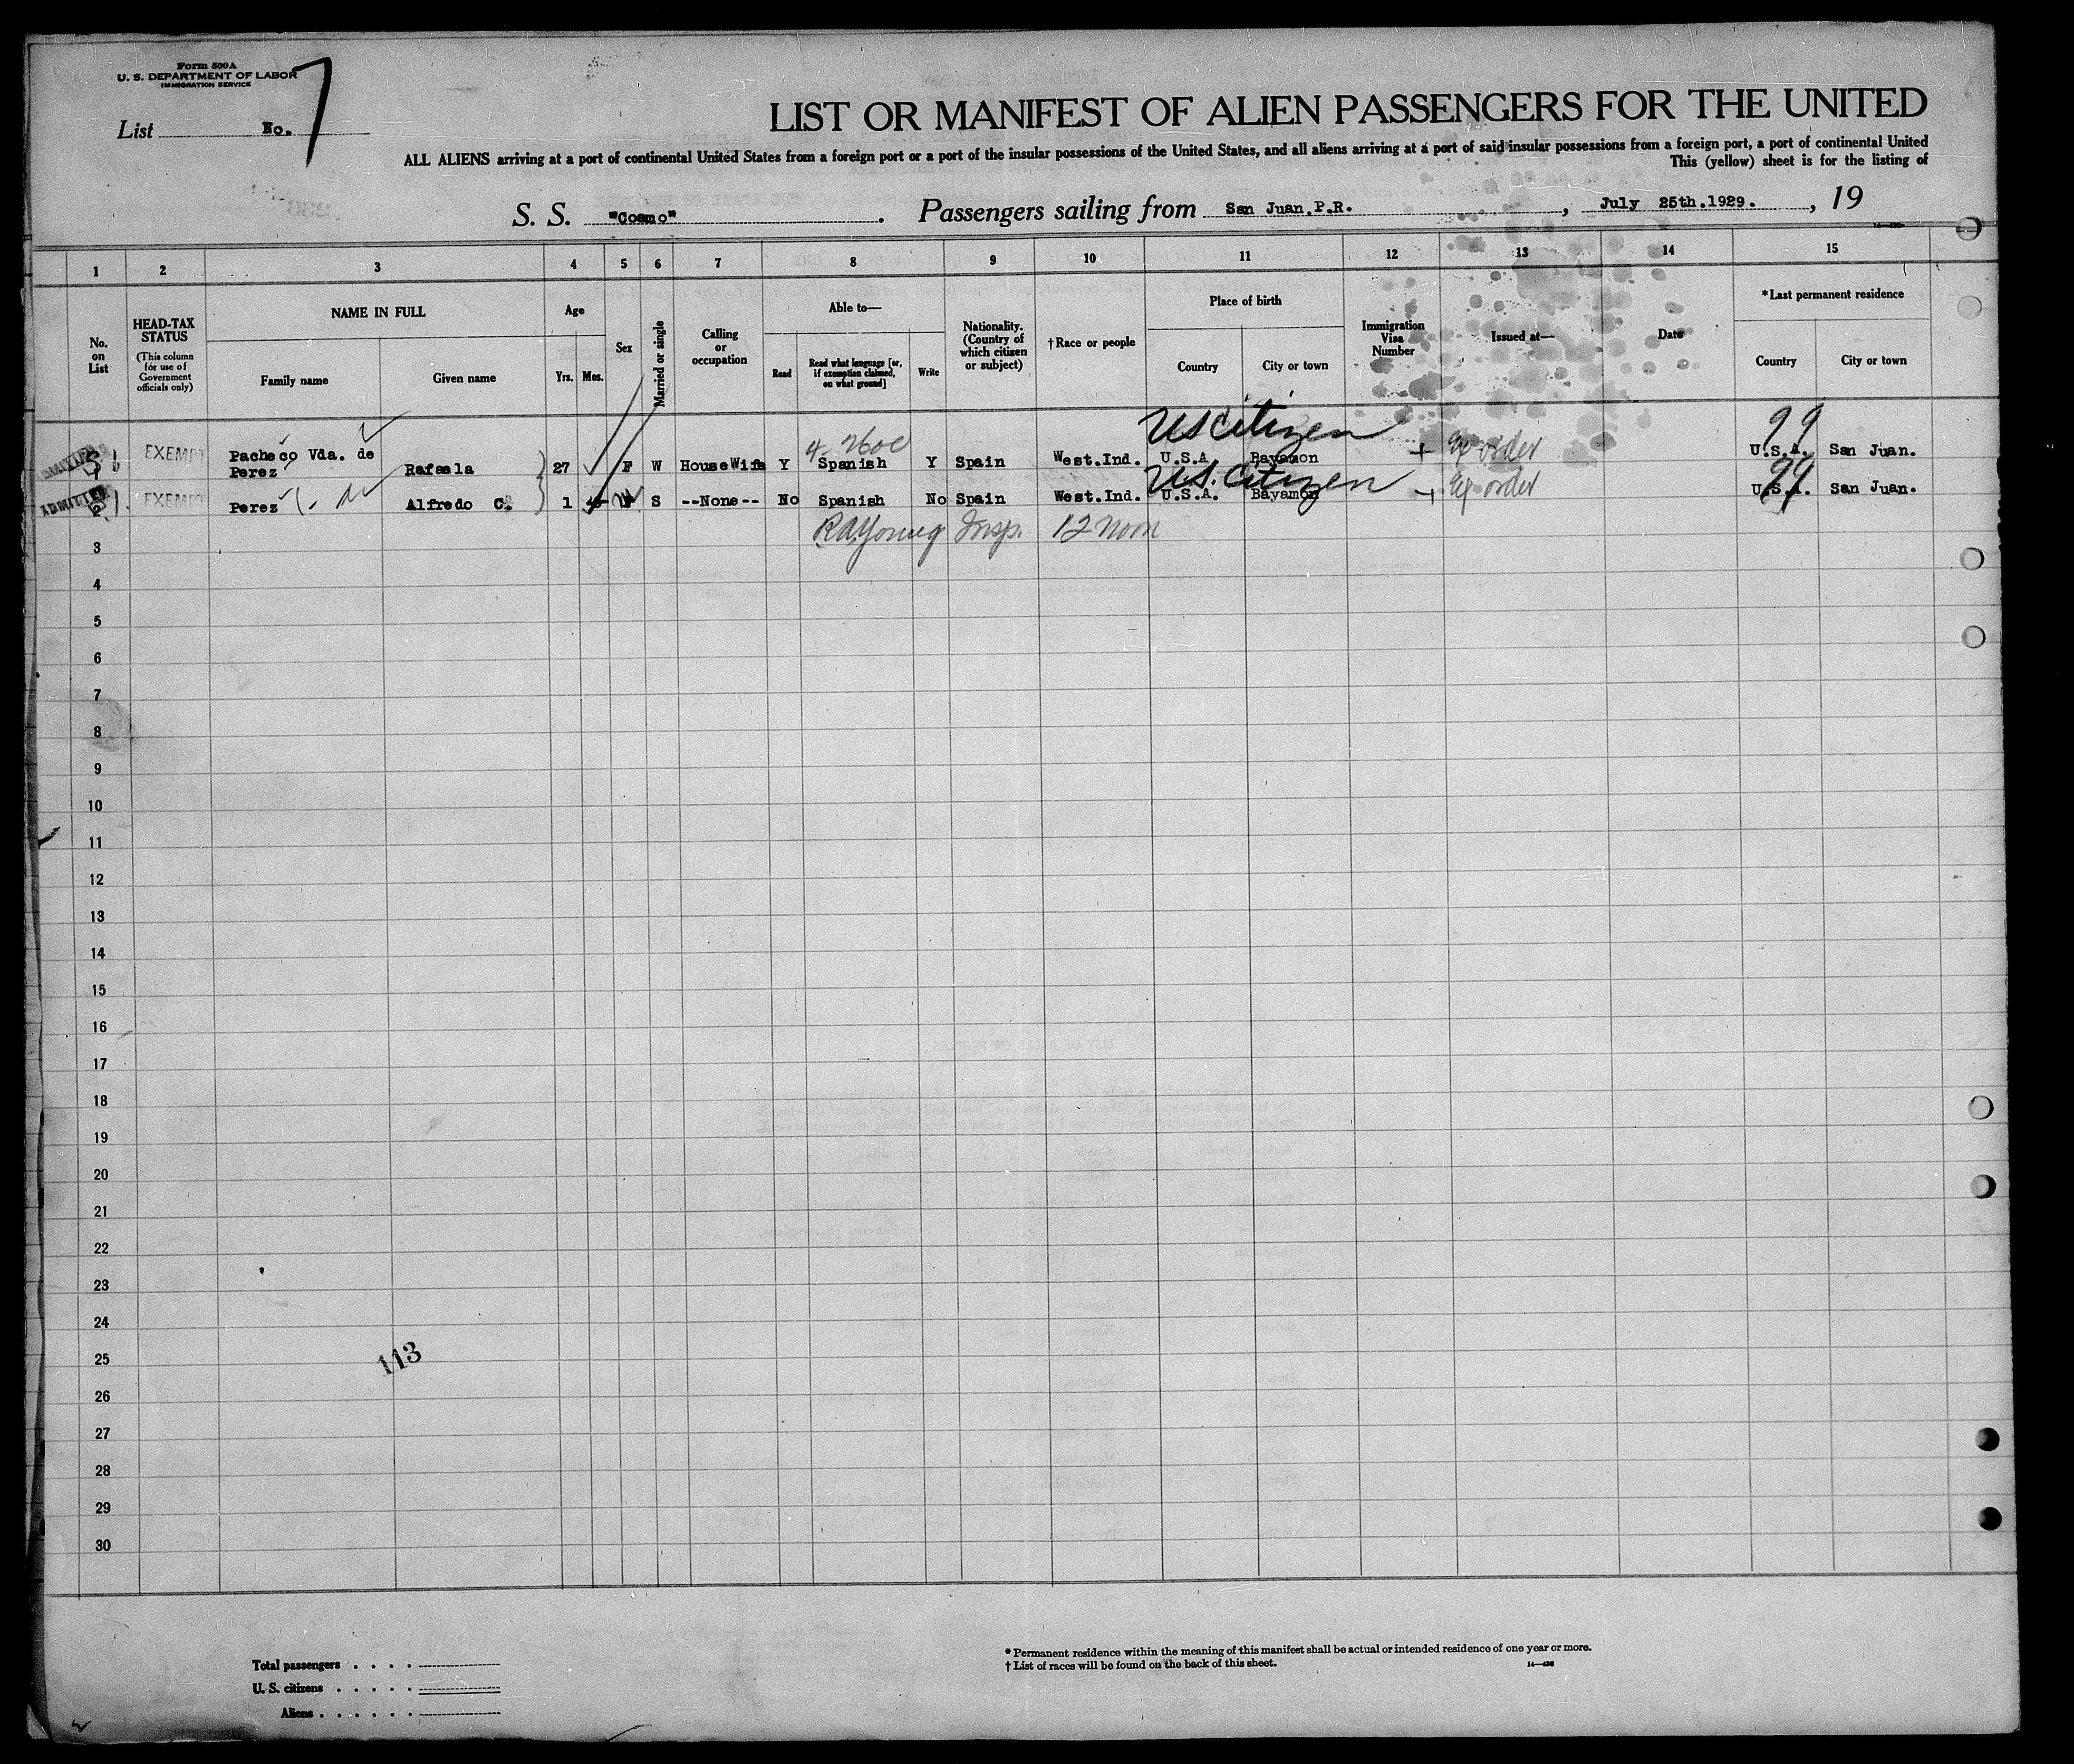 Form 500A
U. S. DEPARTMENT OF LABOR
IMMIGRATION SERVICE
List No. 7
LIST OR MANIFEST OF ALIEN PASSENGERS FOR THE UNITED
ALL ALIENS arriving at a port of continental United States from a foreign port or a port of the insular possessions of the United States, and all aliens arriving at a port of said insular possessions from a foreign port, a port of continental United
This (yellow) sheet is for the listing of
S. S. "Coamo". Passengers sailing from San Juan,P.R., July 25th.1929., 19
1 2 3 4 5 6 7 8 9 10 11 12 13 14 15
No. on List
HEAD-TAX STATUS
(This column for use of Government officials only)
NAME IN FULL
Family name Given name
Age
Yrs. Mos.
Sex
Married or single
Calling or occupation
Able to—
Read
Read what language [or, if exemption claimed, on what ground]
Write
Nationality. (Country of which citizen or subject)
†Race or people
Place of birth
Country City or town
Immigration Visa Number
Issued at—
Date
*Last permanent residence
Country City or town
US Citizen 99
EXEMPT Pacheco Vda. de Perez Rafaela 27 F W HouseWife Y Spanish Y Spain West.Ind. U.S.A. Bayamon U.S.A. San Juan.
US. Citizen 99
ADMITTED EXEMPT Perez Alfredo C. 1 M S --None-- No Spanish No Spain West.Ind. U.S.A. Bayamon U.S.A. San Juan.
RAYoung Insp. 12 noon
3
4
5
6
7
8
9
10
11
12
13
14
15
16
17
18
19
20
21
22
23
24
25
113
26
27
28
29
30
Total passengers . . . .
U. S. citizens . . . . .
Aliens . . . . . .
* Permanent residence within the meaning of this manifest shall be actual or intended residence of one year or more.
† List of races will be found on the back of this sheet.